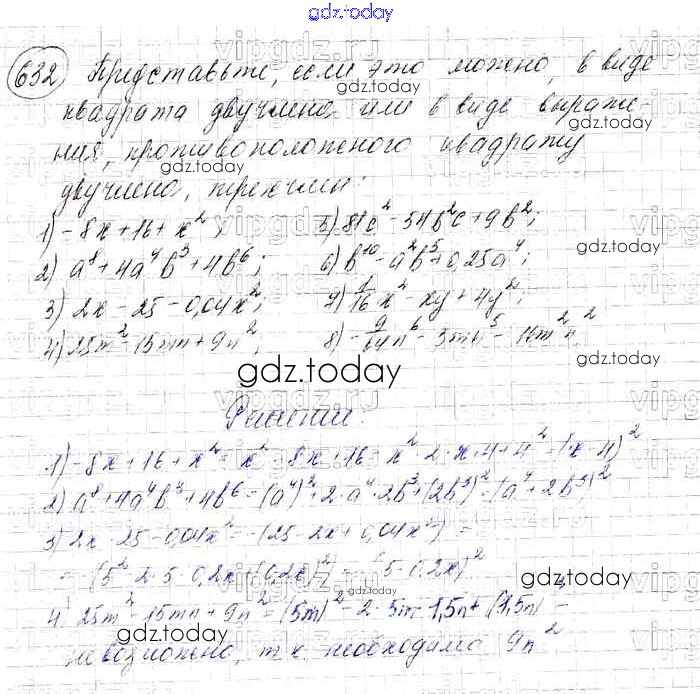 gdz.today
632 Представьте, если это можно, в виде
квадрата двучлена или в виде выраже-
ния, противоположного квадрату
двучлена, трехчлен:
1) -8x+16+x²; 5) 81c²-54b²c+9b²;
2) a⁸+4a⁴b³+4b⁶; 6) b¹⁰-a²b⁵+0,25a⁴;
3) 2x-25-0,04x²; 7) 1/16x²-xy+4y²;
4) 25m²-15mn+9n²; 8) -9/64n⁶-3mn⁵-16m²n²
gdz.today
Решение.
1) -8x+16+x²=x²-8x+16=x²-2·x·4+4²=(x-4)²
2) a⁸+4a⁴b³+4b⁶=(a⁴)²+2·a⁴·2b³+(2b³)²=(a⁴+2b³)²
3) 2x-25-0,04x²=-(25-2x+0,04x²)=
=-(5²-2·5·0,2x+(0,2x)²)=-(5-0,2x)²
4) 25m²-15mn+9n²=(5m)²-2·5m·1,5n+(1,5n)²-
невозможно, т.к. необходимо 9n²
gdz.today